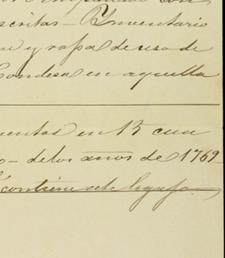 escritas - Inventario
as y ropa de uso de
Condesa en aquella
uentas en 15 cua
o - de los años de 1769
contiene este legajo.